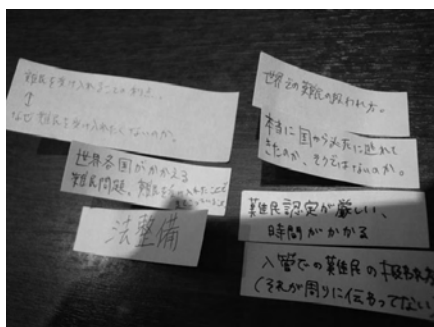 難民を受け入れることの利点。
↑
なぜ難民を受け入れたくないのか。
世界各国がかかえる
難民問題。難民を受け入れたことで
法整備
世界での難民の扱われ方。
本当に国から必死に逃れて
きたのか、そうではないのか。
難民認定が厳しい、
時間がかかる
入管での難民の扱われ方
(それが周りに伝わってない